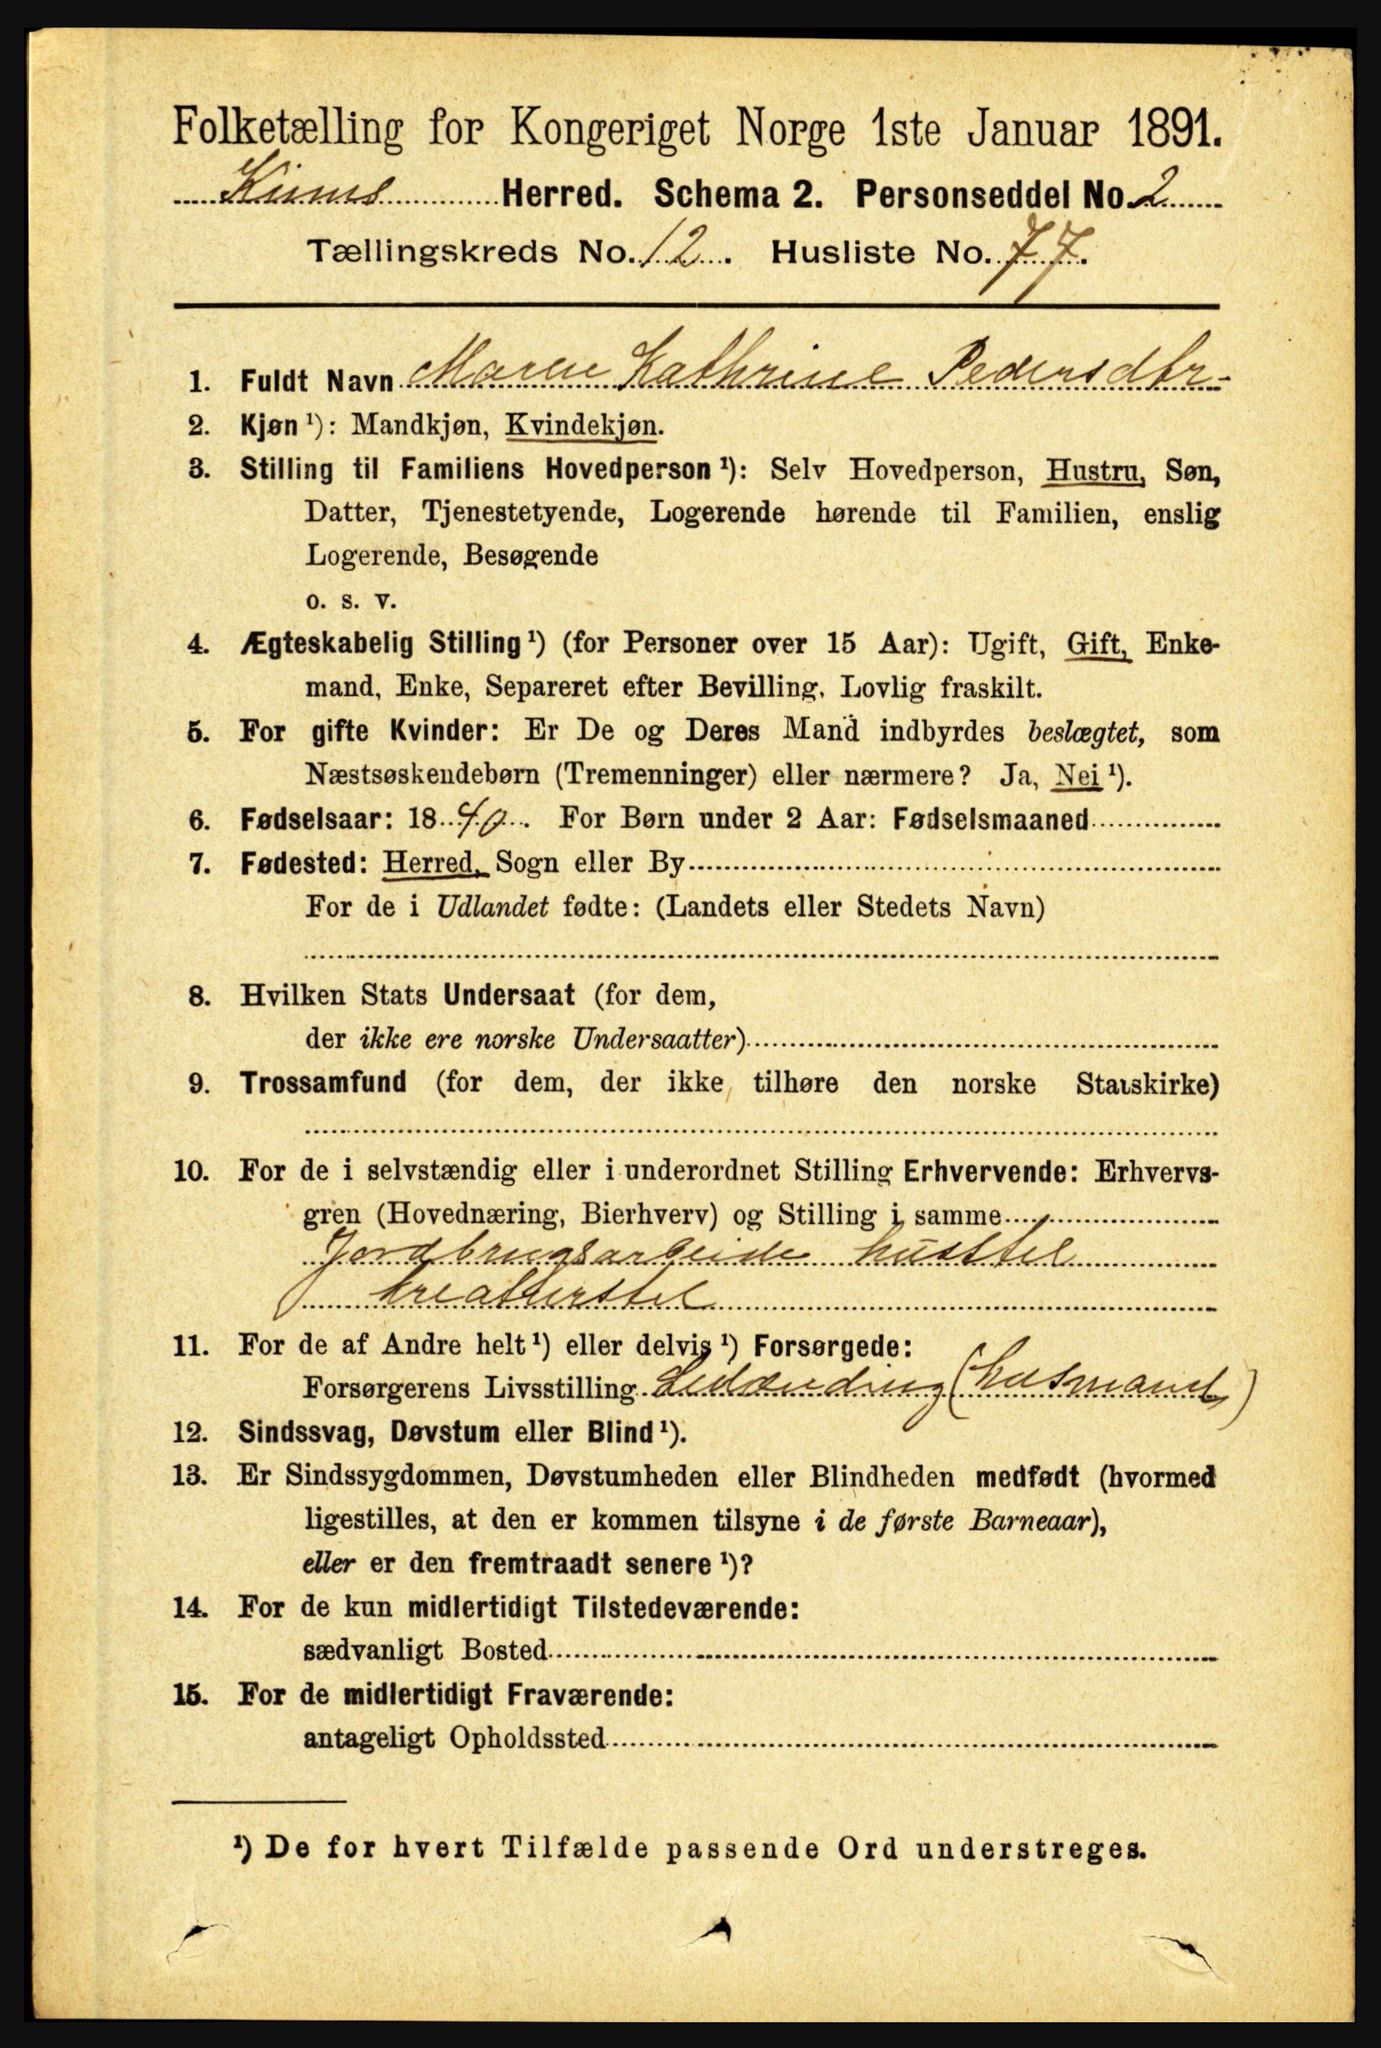 Folketælling for Kongeriget Norge 1ste Januar 1891.
Kinns Herred. Schema 2. Personseddel No. 2
Tællingskreds No. 12. Husliste No. 77.
1. Fuldt Navn Maren Kathrine Pedersdtr-
2. Kjøn ¹): Mandkjøn, Kvindekjøn.
3. Stilling til Familiens Hovedperson ¹): Selv Hovedperson, Hustru, Søn,
Datter, Tjenestetyende, Logerende hørende til Familien, enslig
Logerende, Besøgende
o. s. v.
4. Ægteskabelig Stilling ¹) (for Personer over 15 Aar): Ugift, Gift, Enke-
mand, Enke, Separeret efter Bevilling, Lovlig fraskilt.
5. For gifte Kvinder: Er De og Deres Mand indbyrdes beslægtet, som
Næstsøskendebørn (Tremenninger) eller nærmere? Ja, Nei ¹).
6. Fødselsaar: 1840. For Børn under 2 Aar: Fødselsmaaned
7. Fødested: Herred, Sogn eller By
For de i Udlandet fødte: (Landets eller Stedets Navn)
8. Hvilken Stats Undersaat (for dem,
der ikke ere norske Undersaatter)
9. Trossamfund (for dem, der ikke tilhøre den norske Statskirke)
10. For de i selvstændig eller i underordnet Stilling Erhvervende: Erhvervs-
gren (Hovednæring, Bierhverv) og Stilling i samme
Jordbrugsarbeide husstel
kreatturstel
11. For de af Andre helt ¹) eller delvis ¹) Forsørgede:
Forsørgerens Livsstilling (husmand)
12. Sindssvag, Døvstum eller Blind ¹).
13. Er Sindssygdommen, Døvstumheden eller Blindheden medfødt (hvormed
ligestilles, at den er kommen tilsyne i de første Barneaar),
eller er den fremtraadt senere ¹)?
14. For de kun midlertidigt Tilstedeværende:
sædvanligt Bosted
15. For de midlertidigt Fraværende:
antageligt Opholdssted
¹) De for hvert Tilfælde passende Ord understreges.